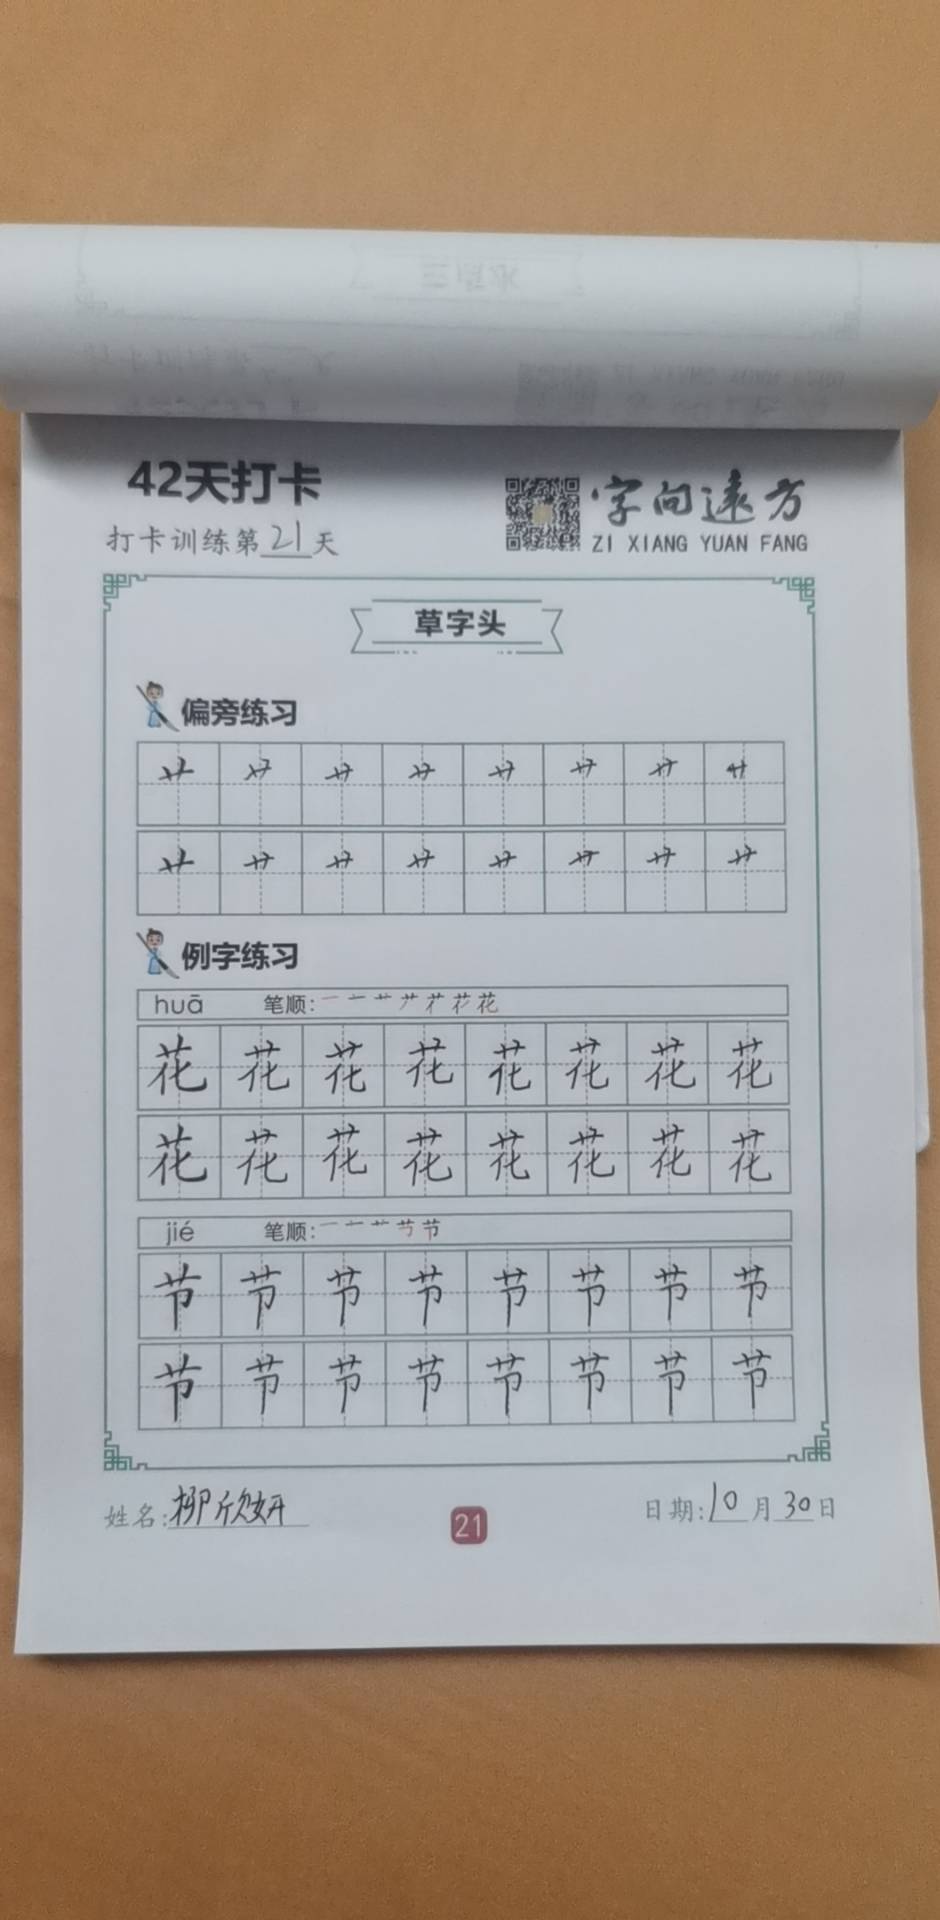 42天打卡
字向远方
打卡训练第21天
ZI XIANG YUAN FANG
草字头
偏旁练习
艹 艹 艹 艹 艹 艹 艹 艹
艹 艹 艹 艹 艹 艹 艹 艹
例字练习
huā 笔顺:
花 花 花 花 花 花 花 花
花 花 花 花 花 花 花 花
jié 笔顺:
节 节 节 节 节 节 节 节
节 节 节 节 节 节 节 节
姓名:柳欣妍
21
日期:10月30日